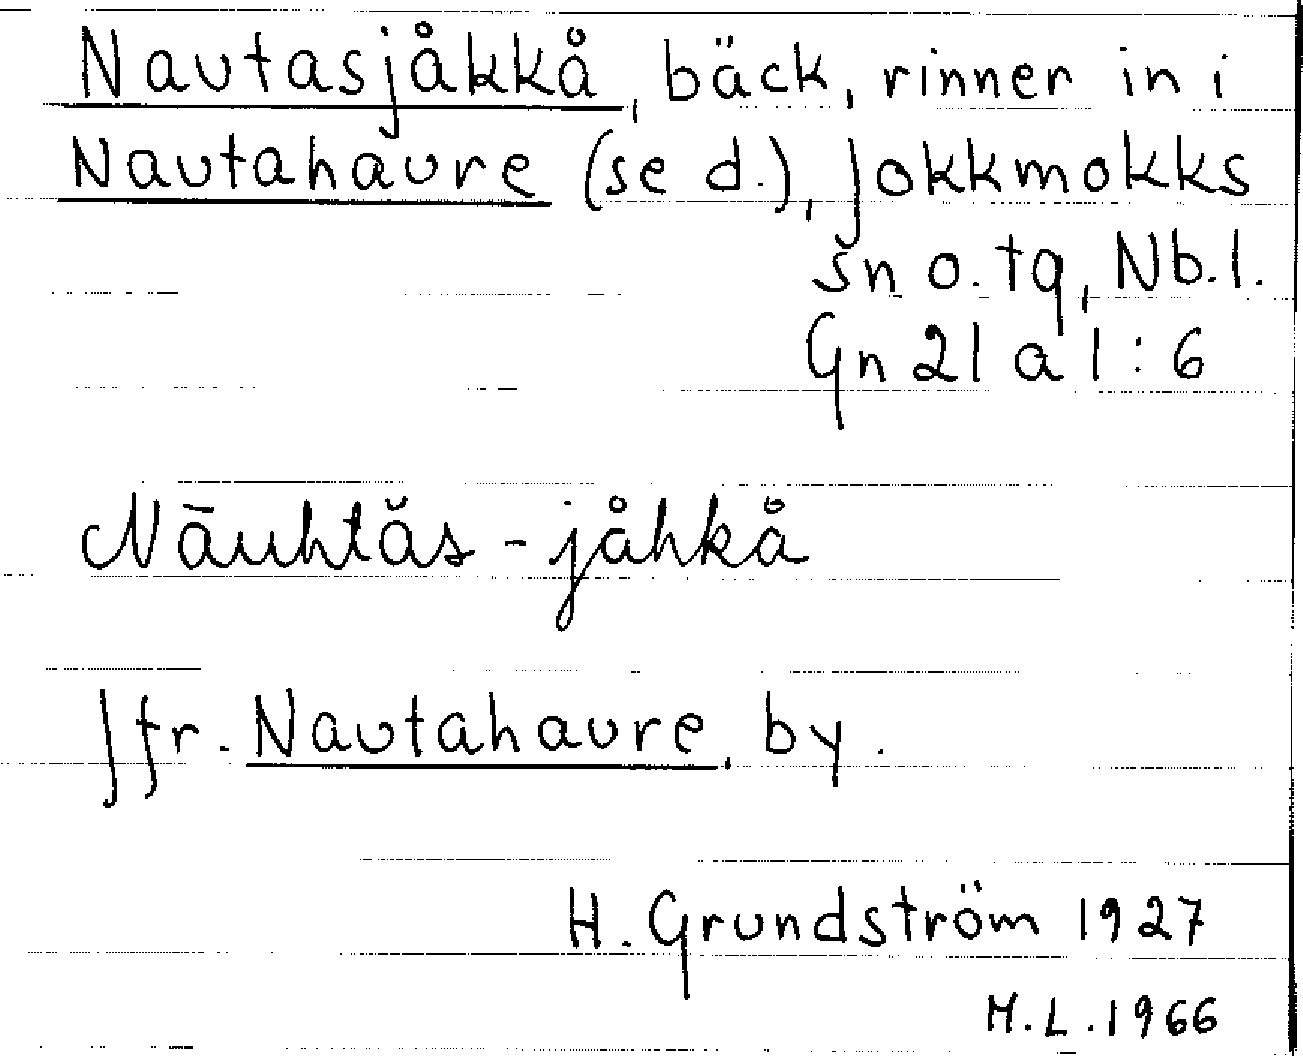 Nautasjåkkå, bäck, rinner in i
Nautahaure (se d.), Jokkmokks
sn o. tg, Nb. l.
Gn 21 a 1:6
Nāuhtǎs-jåhkå
Jfr. Nautahaure, by.
H. Grundström 1927
M.L. 1966